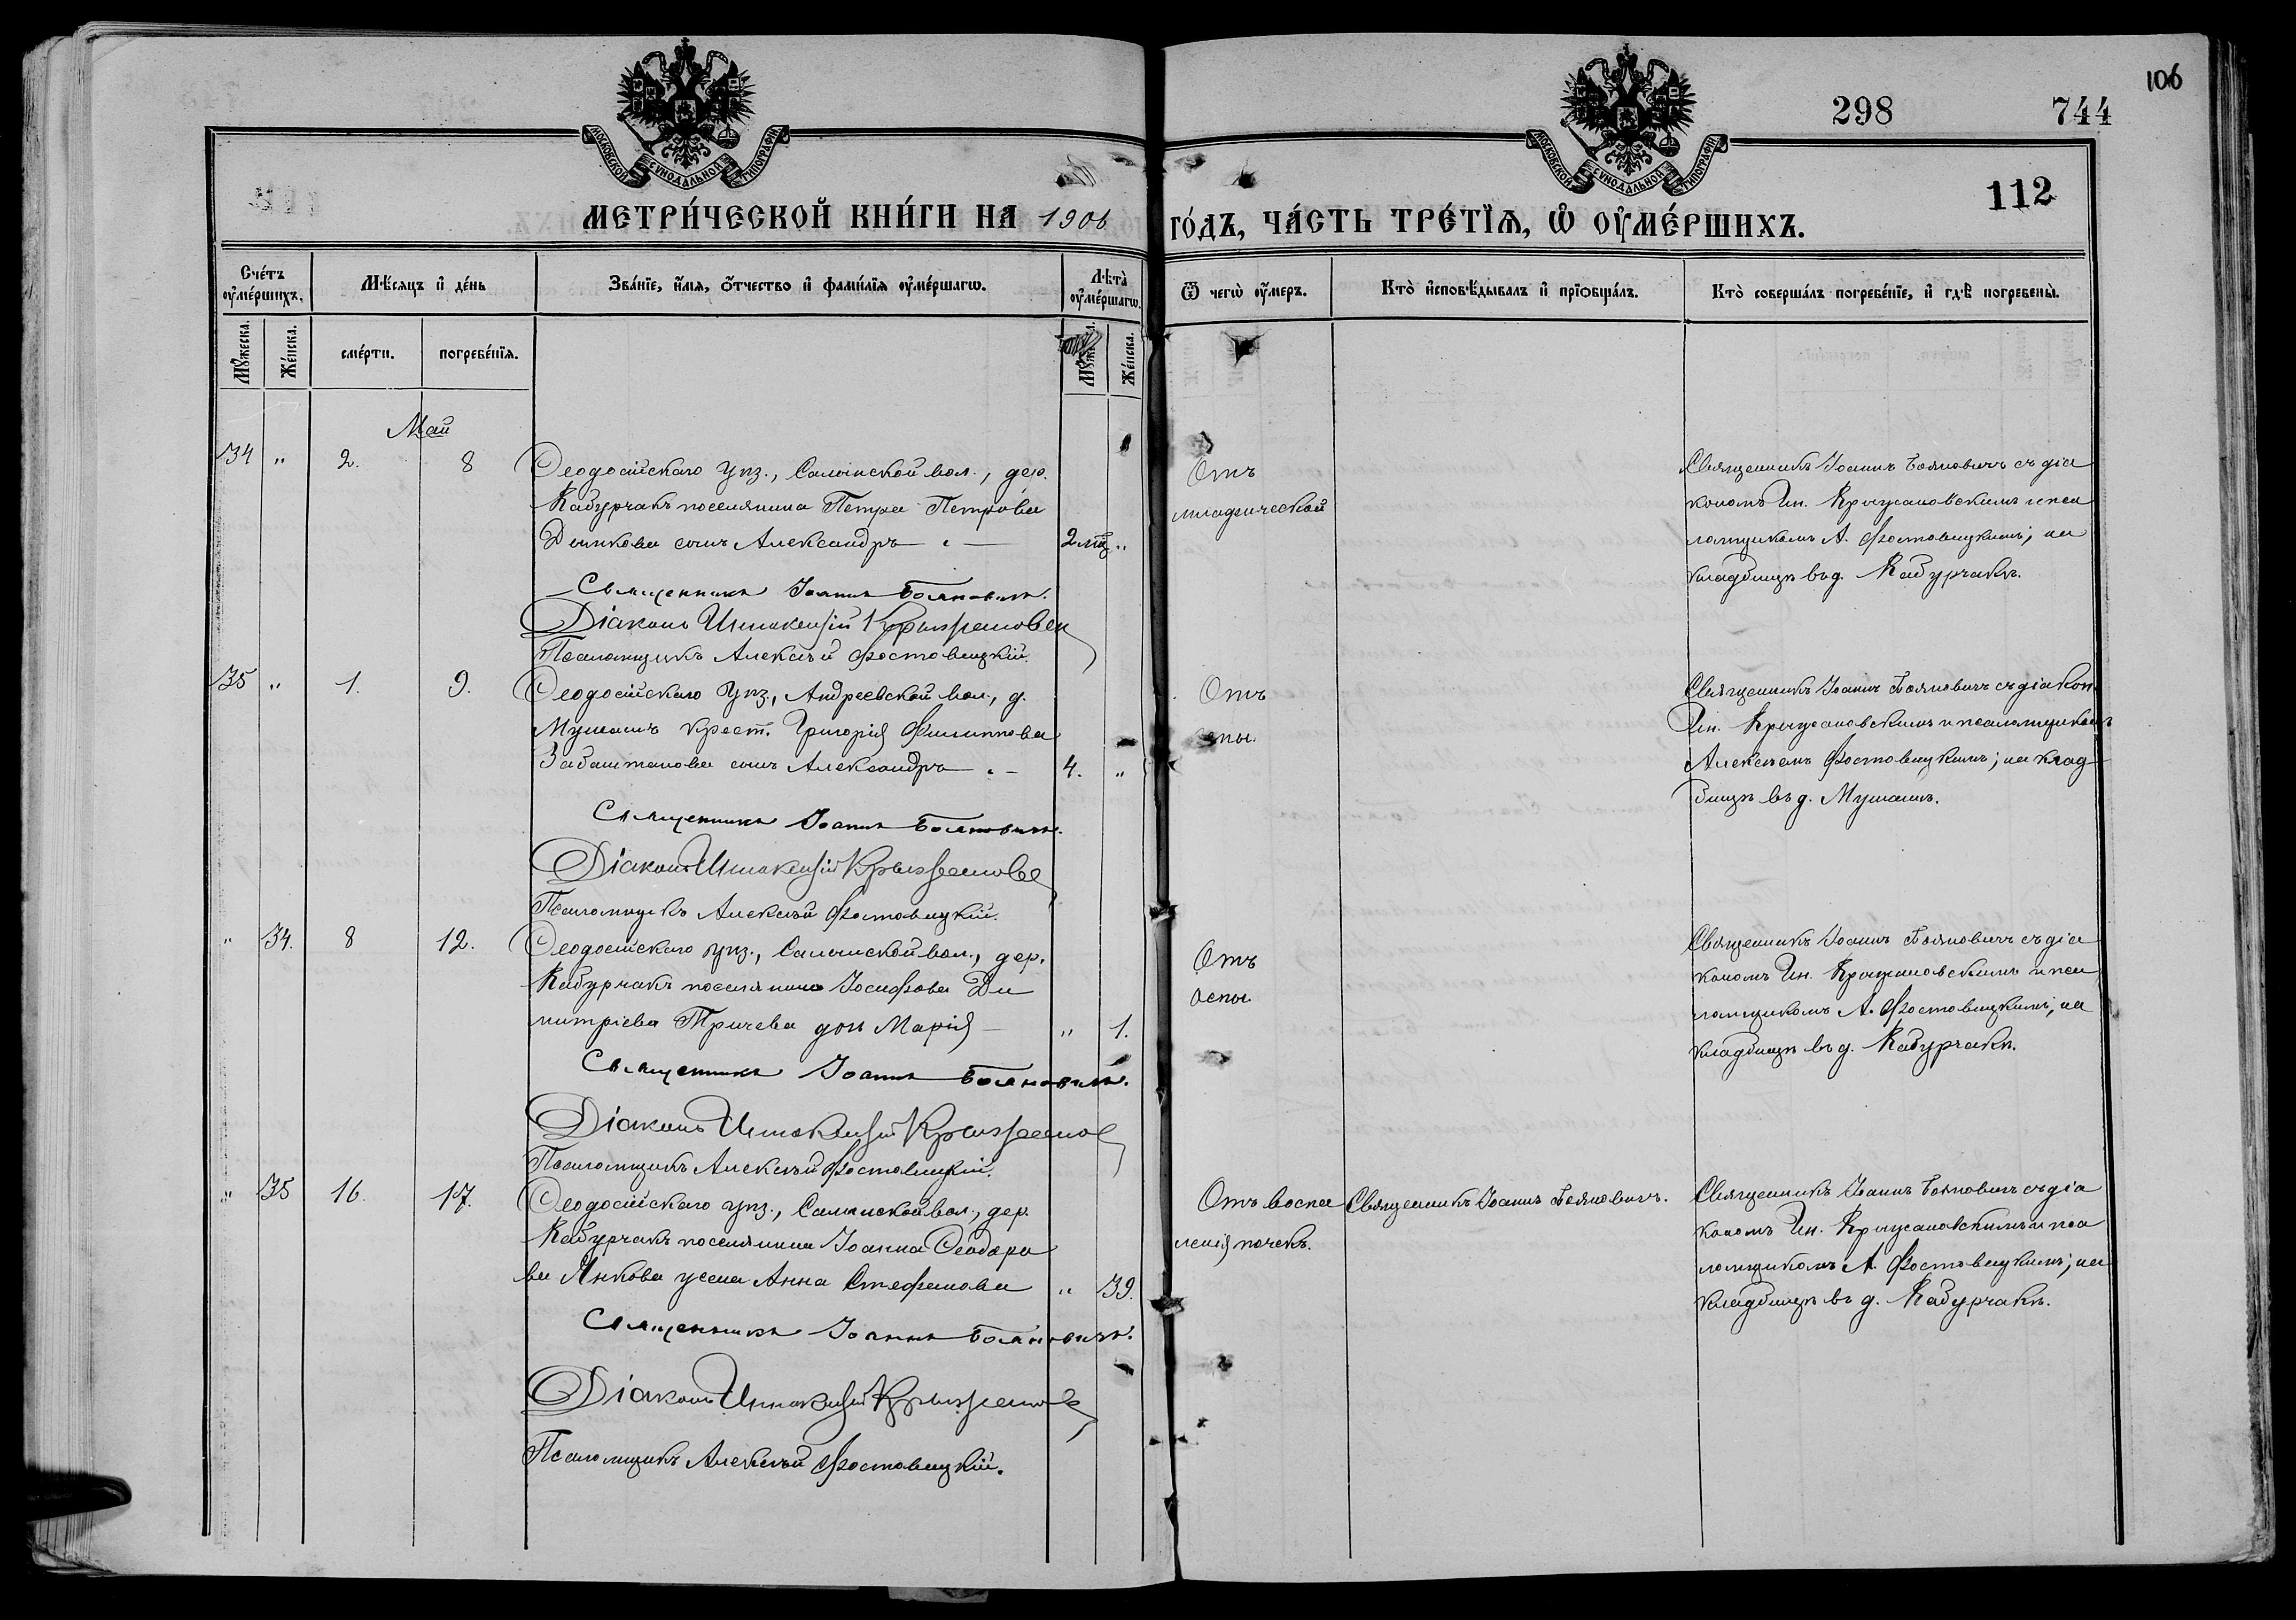 106
298 744
112
МОСКОВСКОЙ СѴНОДАЛЬНОЙ ТИПОГРАФІИ
МОСКОВСКОЙ СѴНОДАЛЬНОЙ ТИПОГРАФІИ
МЕТРИ́ЧЕСКОЙ КНИ́ГИ НА 1906 ГО́ДЪ, ЧА́СТЬ ТРЕ́ТЇѦ, Ѽ ОУ҆МЕ́РШИХЪ.
Сче́тъ оу҆ме́ршихъ.
Мѣ́сяцъ и҆ де́нь
Зва́нїе, и҆́мѧ, ѻ҆́тчество и҆ фами́лїѧ оу҆ме́ршагѡ.
Лѣта̀ оу҆ме́ршагѡ.
Ѿ чегѡ̀ оу҆́меръ.
Кто̀ и҆сповѣ́дывалъ и҆ прїѡбща́лъ.
Кто̀ соверша́лъ погребе́нїе, и҆ гдѣ̀ погребены̀.
Мꙋ́жеска.
Же́нска.
сме́рти.
погребе́нїѧ.
Же́нска.
Май
34 " 2. 8
Ѳеодосійскаго уѣз., Салынской вол., дер.
Кабурчакъ поселянина Петра Петрова
сынъ Александръ — 2 мѣ. "
Священникъ Іоаннъ Бояновичъ.
Діаконъ Иннокентій Крыжановск
Псаломщикъ Алексѣй Фостовицкій.
Отъ
младенческой
Священникъ Іоаннъ Бояновичъ съ діа
кономъ Ин. Крыжановскимъ и пса
ломщикомъ А. Фостовицкимъ; на
кладбищѣ въ д. Кабурчакъ.
35 " 1. 9.
Ѳеодосійскаго уѣз., Андреевской вол., д.
Мушашъ крест. Григорія Филиппова
Забаштанова сынъ Александръ — 4. "
Священникъ Іоаннъ Бояновичъ.
Діаконъ Иннокентій Крыжановс
Псаломщикъ Алексѣй Фостовицкій.
Отъ
оспы.
Священникъ Іоаннъ Бояновичъ съ діакон.
Ин. Крыжановскимъ и псаломщикомъ
Алексѣемъ Фостовицкимъ; на клад-
бищѣ въ д. Мушашъ.
" 34. 8 12.
Ѳеодосійскаго уѣз., Салынской вол., дер.
Кабурчакъ поселянина Іосифова Ди
митріева Тричева дочь Марія — " 1.
Священникъ Іоаннъ Бояновичъ.
Діаконъ Иннокентій Крыжанов
Псаломщикъ Алексѣй Фостовицкій.
Отъ
оспы
Священникъ Іоаннъ Бояновичъ съ діа
кономъ Ин. Крыжановскимъ и пса
ломщикомъ А. Фостовицкимъ; на
кладбищѣ въ д. Кабурчакѣ.
" 35 16. 17.
Ѳеодосійскаго уѣз., Салынской вол., дер.
Кабурчакъ поселянина Іоанна Ѳеодоро
ва Янкова жена Анна Стефанова " 39.
Священникъ Іоаннъ Бояновичъ.
Діаконъ Иннокентій Крыжановс
Псаломщикъ Алексѣй Фостовицкій.
Отъ воспа
ленія почекъ.
Священникъ Іоаннъ Бояновичъ.
Священникъ Іоаннъ Бояновичъ съ діа
кономъ Ин. Крыжановскимъ и пса
ломщикомъ А. Фостовицкимъ; на
кладбищѣ въ д. Кабурчакѣ.